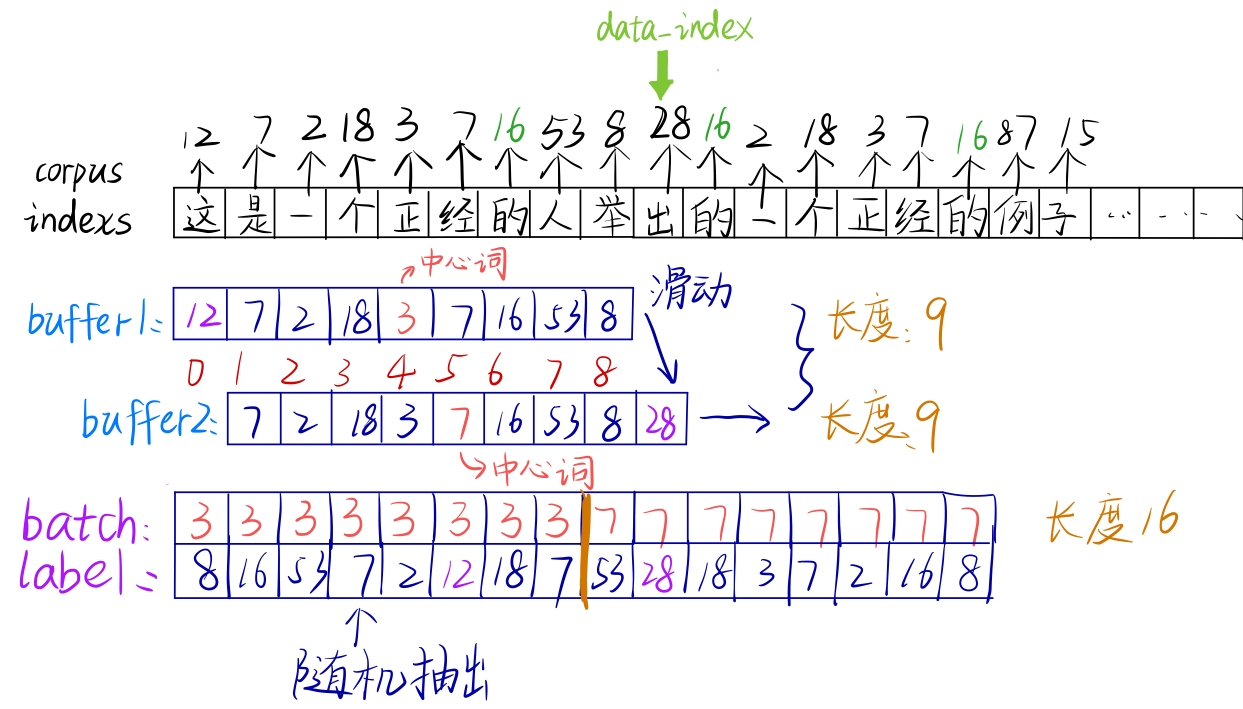 data_index
12 7 2 18 3 7 16 53 8 28 16 2 18 3 7 16 87 15
corpus
indexs 这 是 一 个 正 经 的 人 举 出 的 一 个 正 经 的 例 子 ... ... ...
中心词
buffer1: 12 7 2 18 3 7 16 53 8 滑动 长度: 9
0 1 2 3 4 5 6 7 8
buffer2: 7 2 18 3 7 16 53 8 28 长度: 9
中心词
batch: 3 3 3 3 3 3 3 3 7 7 7 7 7 7 7 7 长度16
label: 8 16 53 7 2 12 18 7 53 28 18 3 7 2 16 8
随机抽出